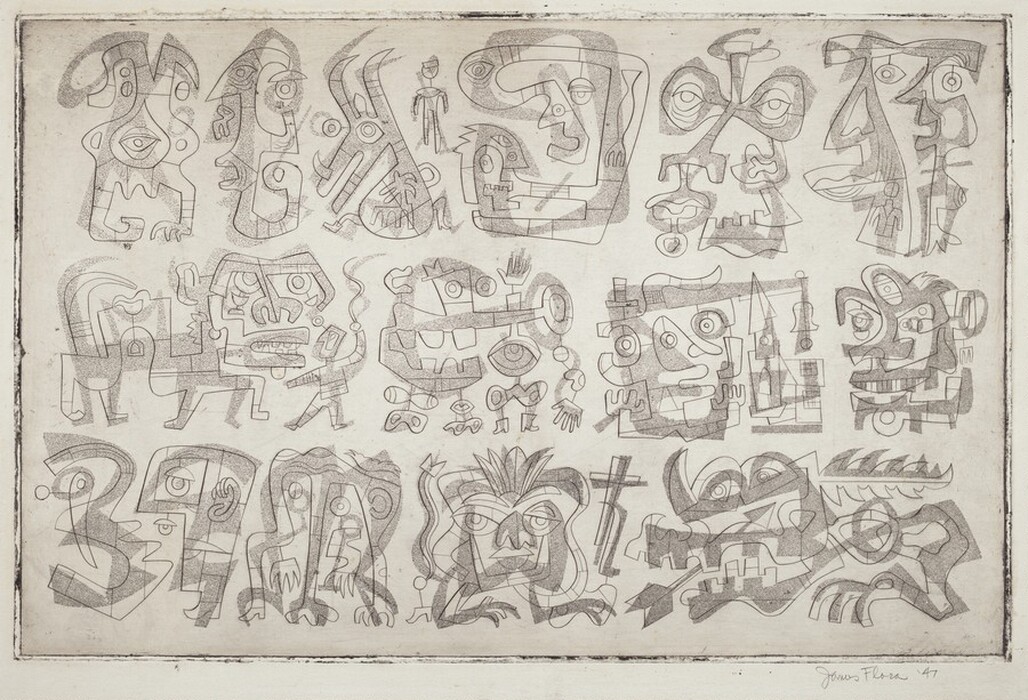 James Flora '47